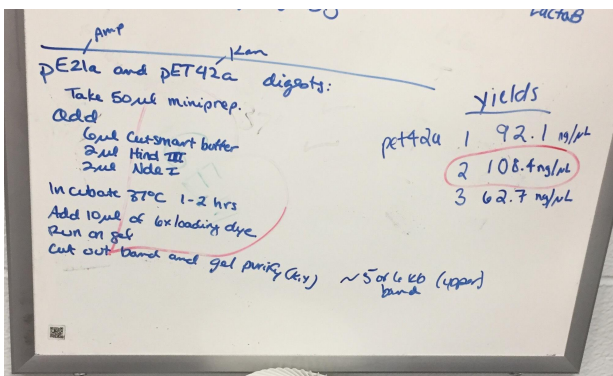 LactaB
Amp
Kan
pE21a and pET42a digests:
Take 50ul miniprep.
Add
6ul Cutsmart buffer
2ul Hind III
2ul Nde I
Incubate 37°C 1-2 hrs
Add 10ul of 6x loading dye
Run on gel
Cut out band and gel purify (kit) ~5 or 6 kb (upper)
band
yields
pet42a 1 92.1 ng/uL
2 108.4 ng/uL
3 62.7 ng/uL